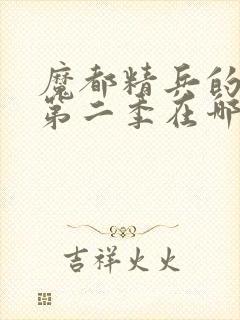 魔都精兵的
第二季在哪
吉祥火火